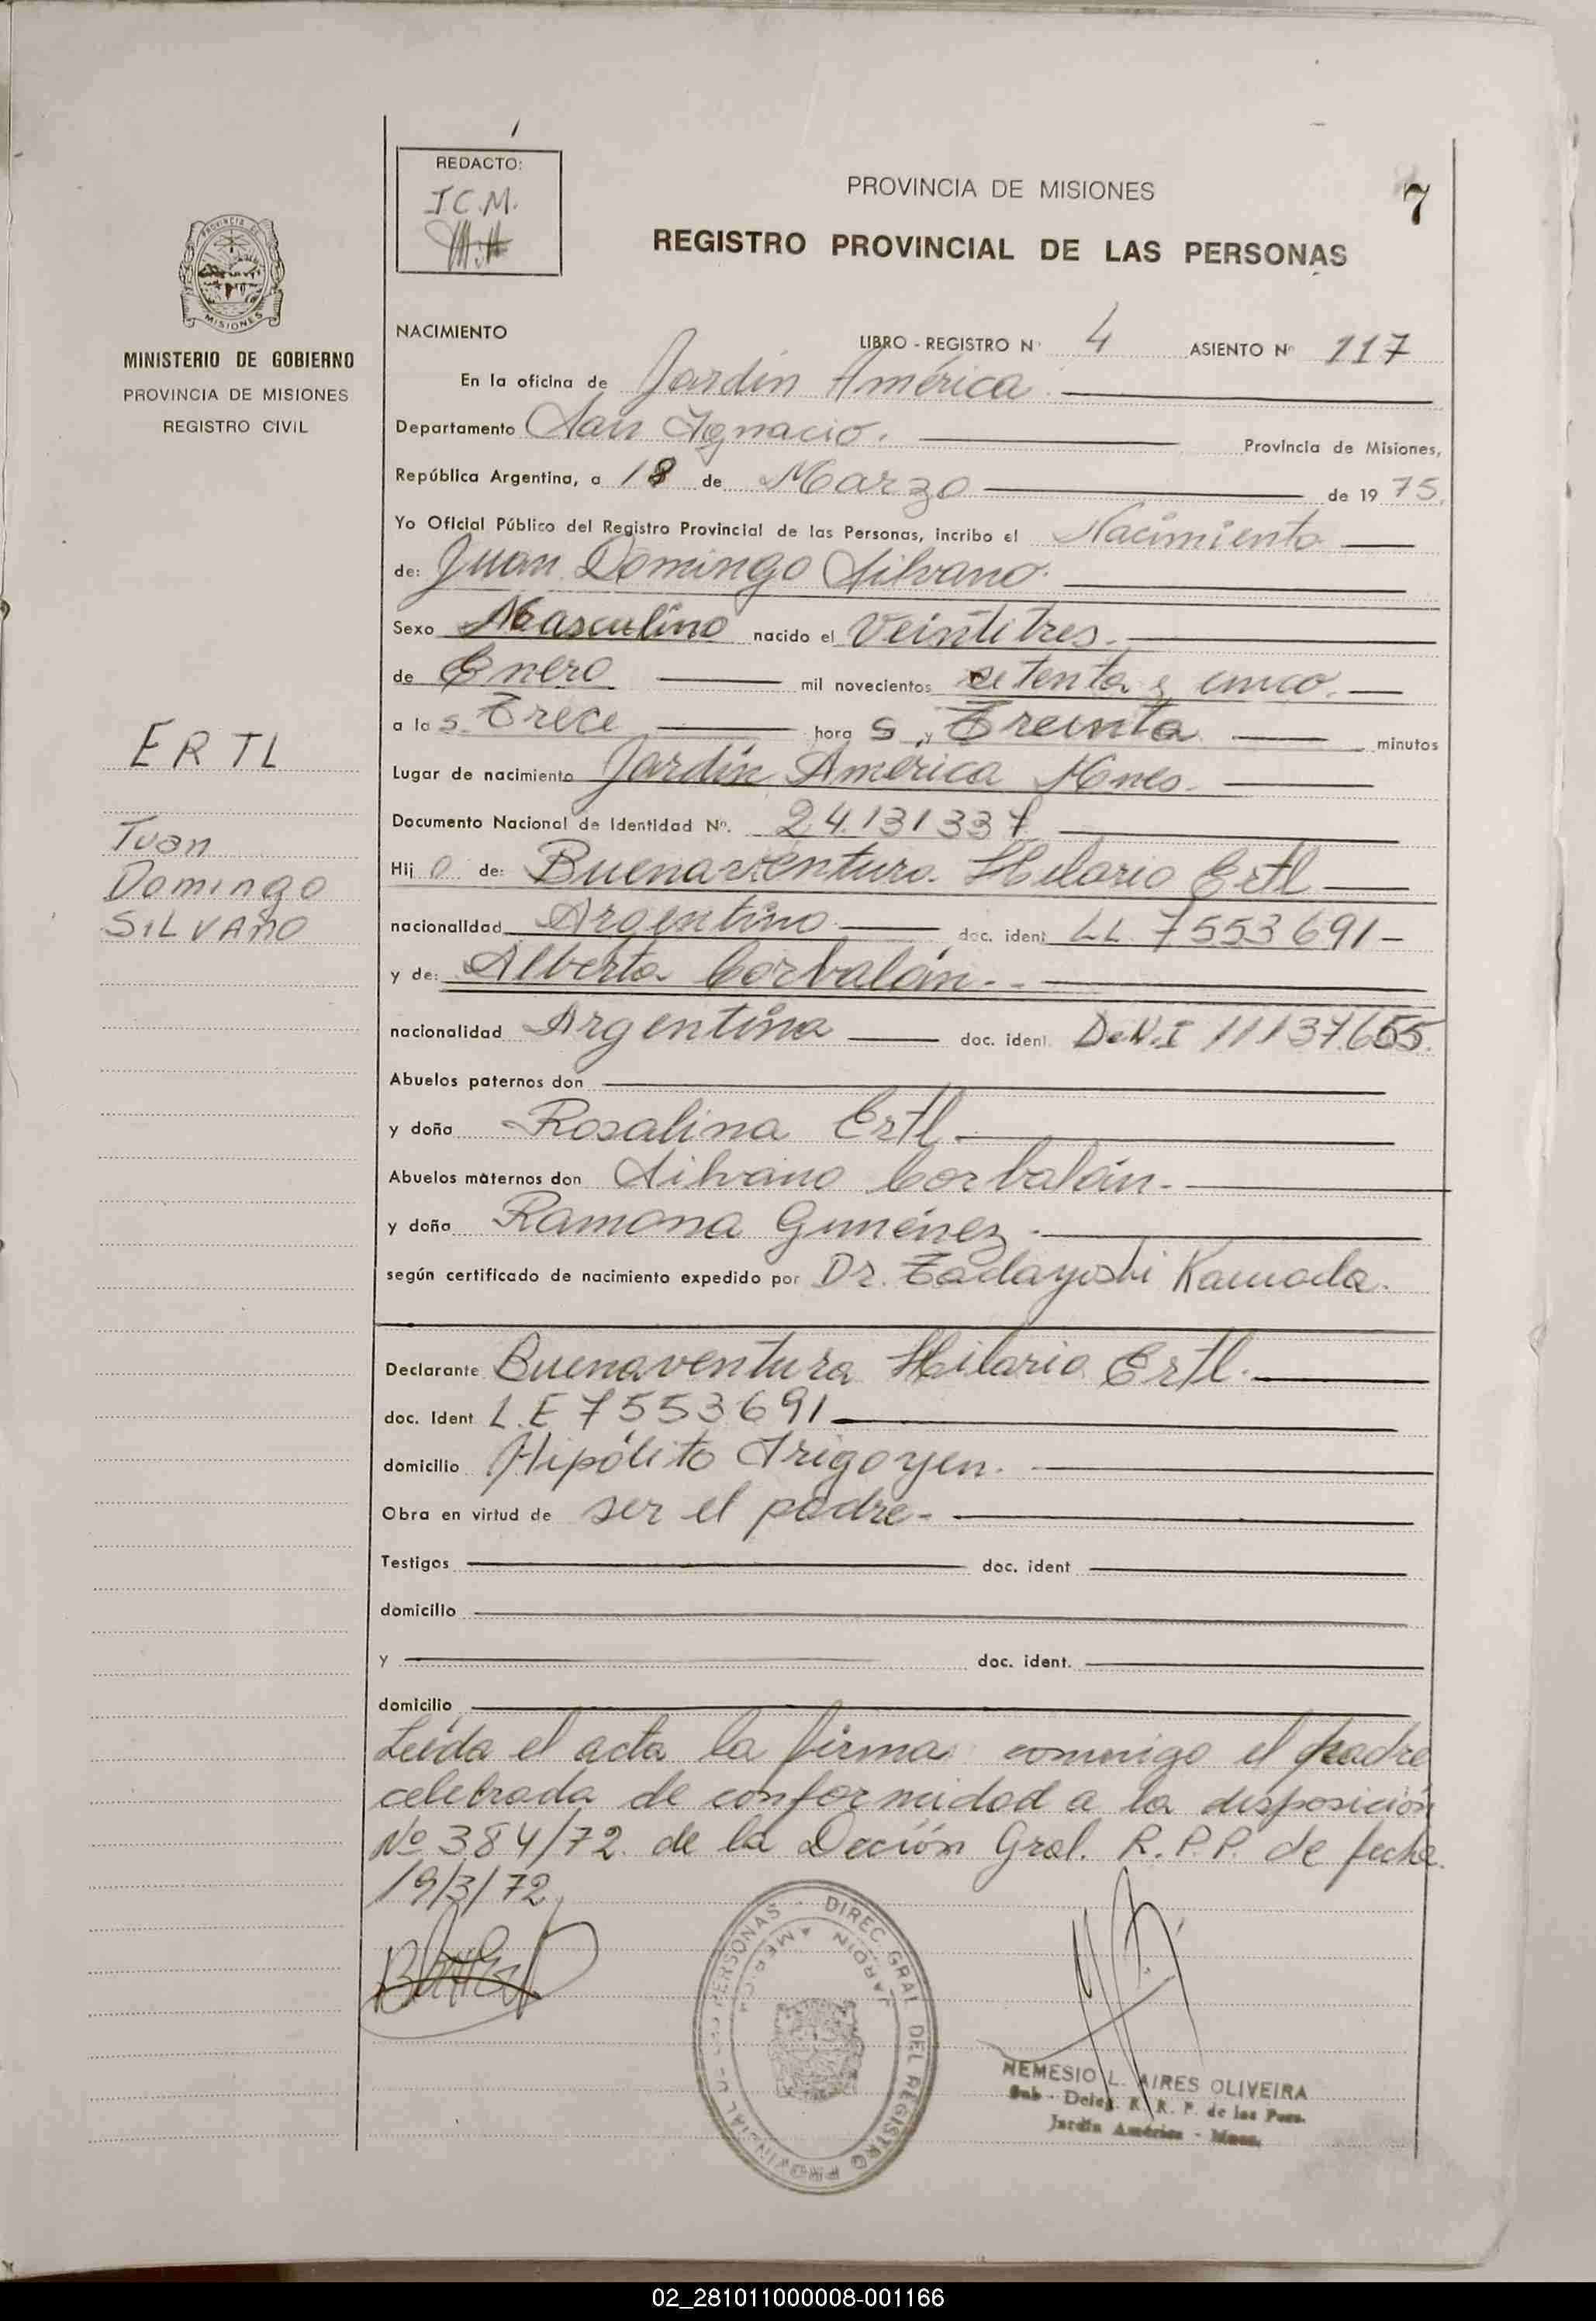 REDACTO:
J.C.M.
PROVINCIA DE MISIONES
7
REGISTRO PROVINCIAL DE LAS PERSONAS
MISIONES
MINISTERIO DE GOBIERNO
PROVINCIA DE MISIONES
REGISTRO CIVIL
NACIMIENTO LIBRO - REGISTRO Nº 4 ASIENTO Nº 117
En la oficina de Jardín América
Departamento San Ignacio. Provincia de Misiones,
República Argentina, a 18 de Marzo de 1975.
Yo Oficial Público del Registro Provincial de las Personas, incribo el Nacimiento
de: Juan Domingo Silvano.
Sexo Masculino nacido el Veintitres.
de Enero mil novecientos setenta y cinco.
a las Trece horas y Treinta minutos
Lugar de nacimiento Jardín América Mnes.
Documento Nacional de Identidad Nº. 24.131337
Hijo de: Buenaventura Hilario Ertl
nacionalidad Argentino doc. ident 7553691-
y de: Alberta Corbalán.
nacionalidad Argentina doc. ident. D.N.I 11137.655.
Abuelos paternos don
y doña Rosalina Ertl
Abuelos maternos don Silvano Corbalán.
y doña Ramona Gimenez.
según certificado de nacimiento expedido por Dr. Tadayoshi Kamada.
ERTL
Juan
Domingo
SILVANO
Declarante Buenaventura Hilario Ertl.
doc. Ident L.E 7553691
domicilio Hipólito Irigoyen.
Obra en virtud de ser el padre-
Testigos doc. ident
domicilio
y doc. ident.
domicilio
Leída el acta la firma conmigo el padre
celebrada de conformidad a la disposición
Nº 384/72 de la Dección Gral. R.P.P. de fecha
19/3/72,
DIREC GRAL DEL REGISTRO PROVINCIAL DE LAS PERSONAS
JARDIN AMERICA
NEMESIO L. AIRES OLIVEIRA
Sub - Deleg. R. R. P. de las Pers.
Jardín América - Mnes.
02_281011000008-001166